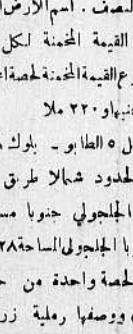 لنصف . اسم الارض
القيمة المخمنة لكل
ع القيمة المخمنة لحصة
جنيها و ٢٢٠ ملا
ل ٥ الطابو ـ بلوك
لحدود شمالا طريق
الجلجولي جنوبا مس
با الجلجولي المساحة ٢٨
لحصة واحدة من
ووصفها رملية زر